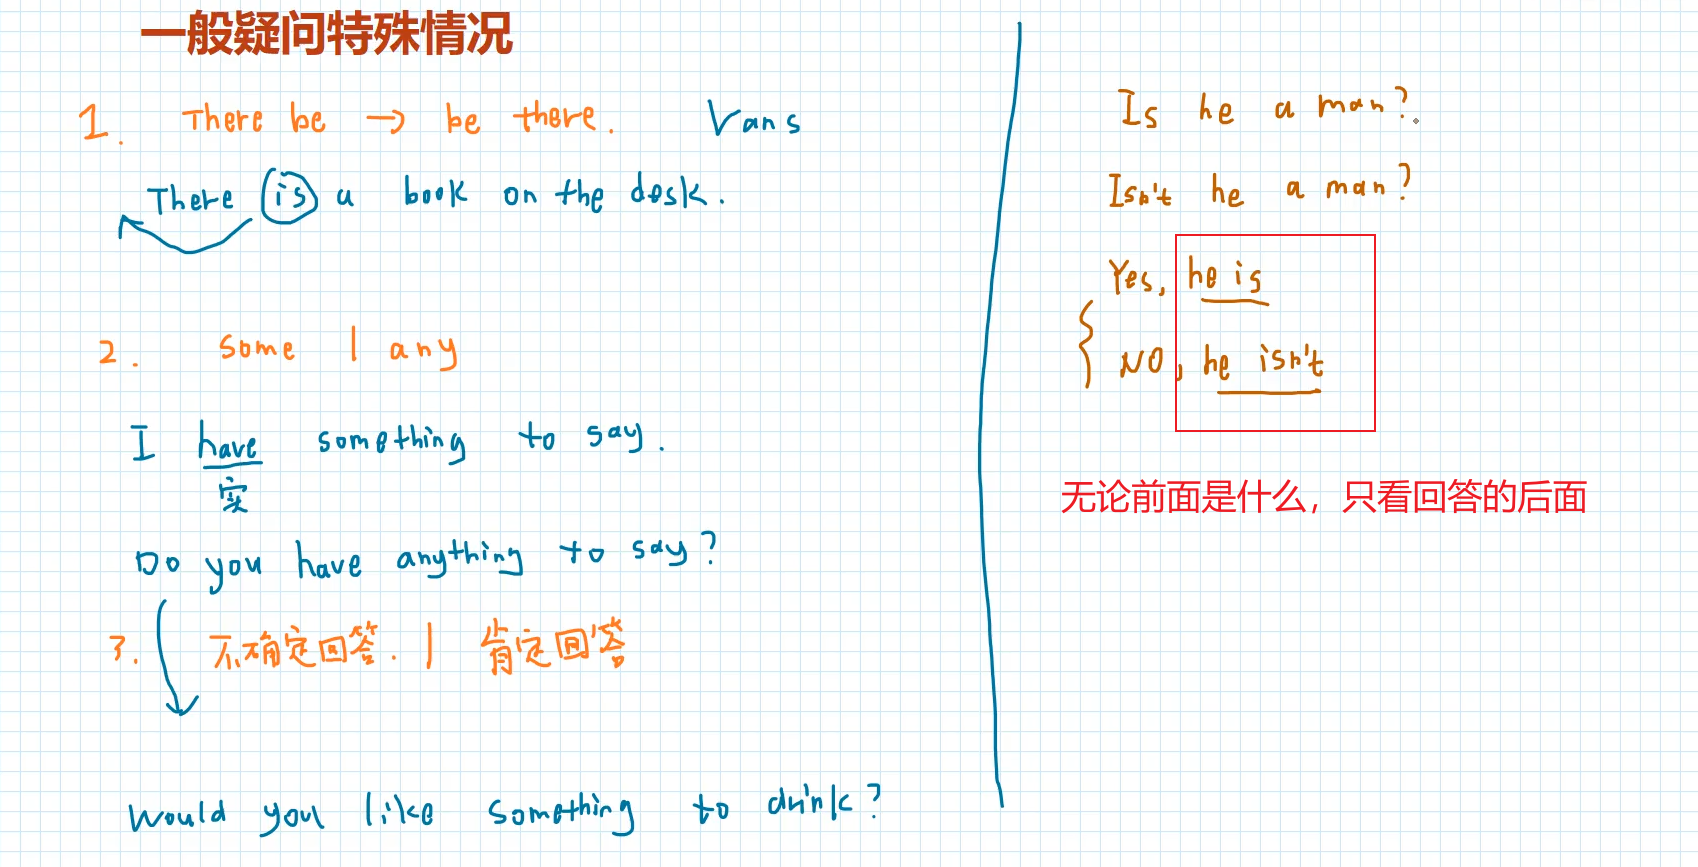 一般疑问特殊情况
1. There be → be there. Vans
There is a book on the desk.
2. some | any
I have something to say.
实
Do you have anything to say?
3. 不确定回答. | 肯定回答
Would you like something to drink?
Is he a man?
Isn't he a man?
Yes, he is
NO, he isn't
无论前面是什么，只看回答的后面